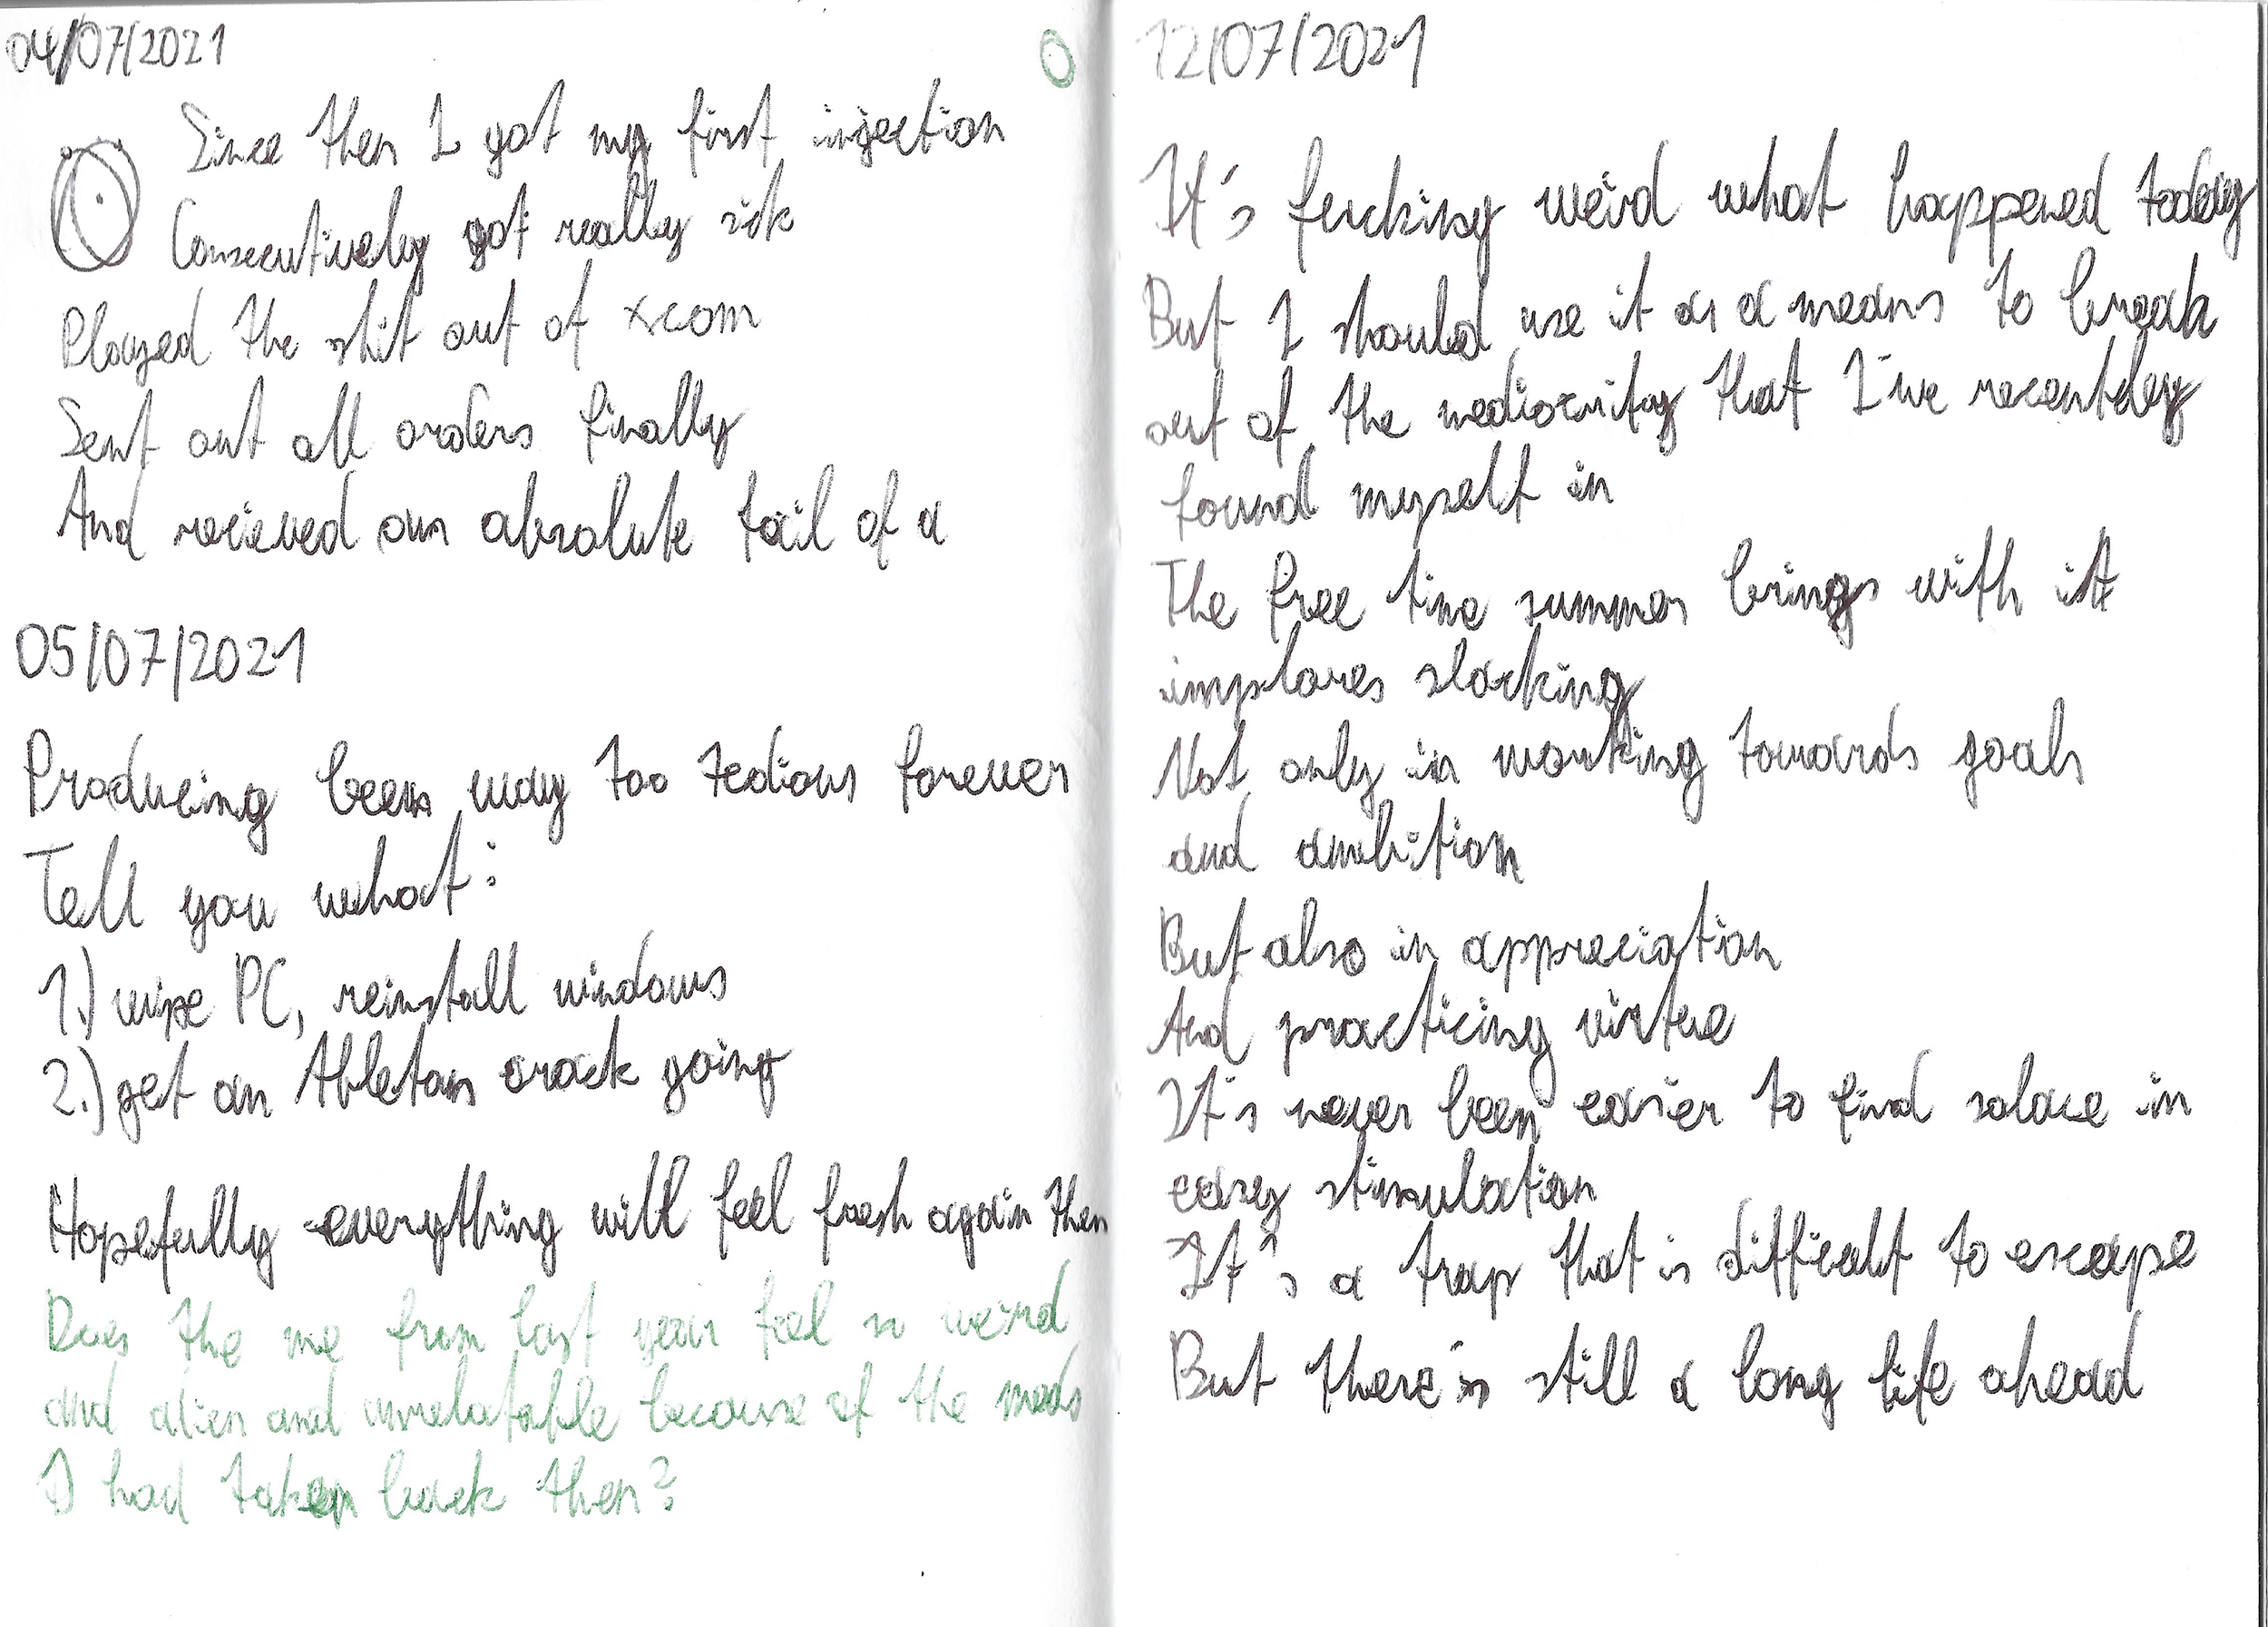 04/07/2021
Since then I got my first injection
Consecutively got really sick
Played the shit out of xcom
Sent out all orders finally
And recieved an absolute fail of a
05/07/2021
Producing been way too tedious forever
Tell you what:
1.) wipe PC, reinstall windows
2.) get an Ableton crack going
Hopefully everything will feel fresh again then
Does the me from last year feel so weird
and alien and unrelatable because of the meds
I had taken back then?
12/07/2021
It's fucking weird what happened today
But I should use it as a means to break
out of the mediocrity that I've recently
found myself in
The free time summer brings with it
implores slacking
Not only in working towards goals
and ambition
But also in appreciation
And practicing virtue
It's never been easier to find solace in
easy stimulation
It's a trap that is difficult to escape
But there's still a long life ahead